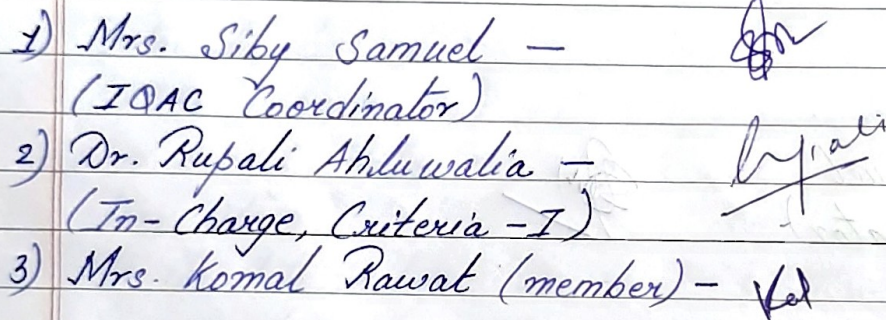 1) Mrs. Siby Samuel –
(IQAC Coordinator)
2) Dr. Rupali Ahluwalia –
(In-Charge, Criteria -I)
3) Mrs. Komal Rawat (member) –